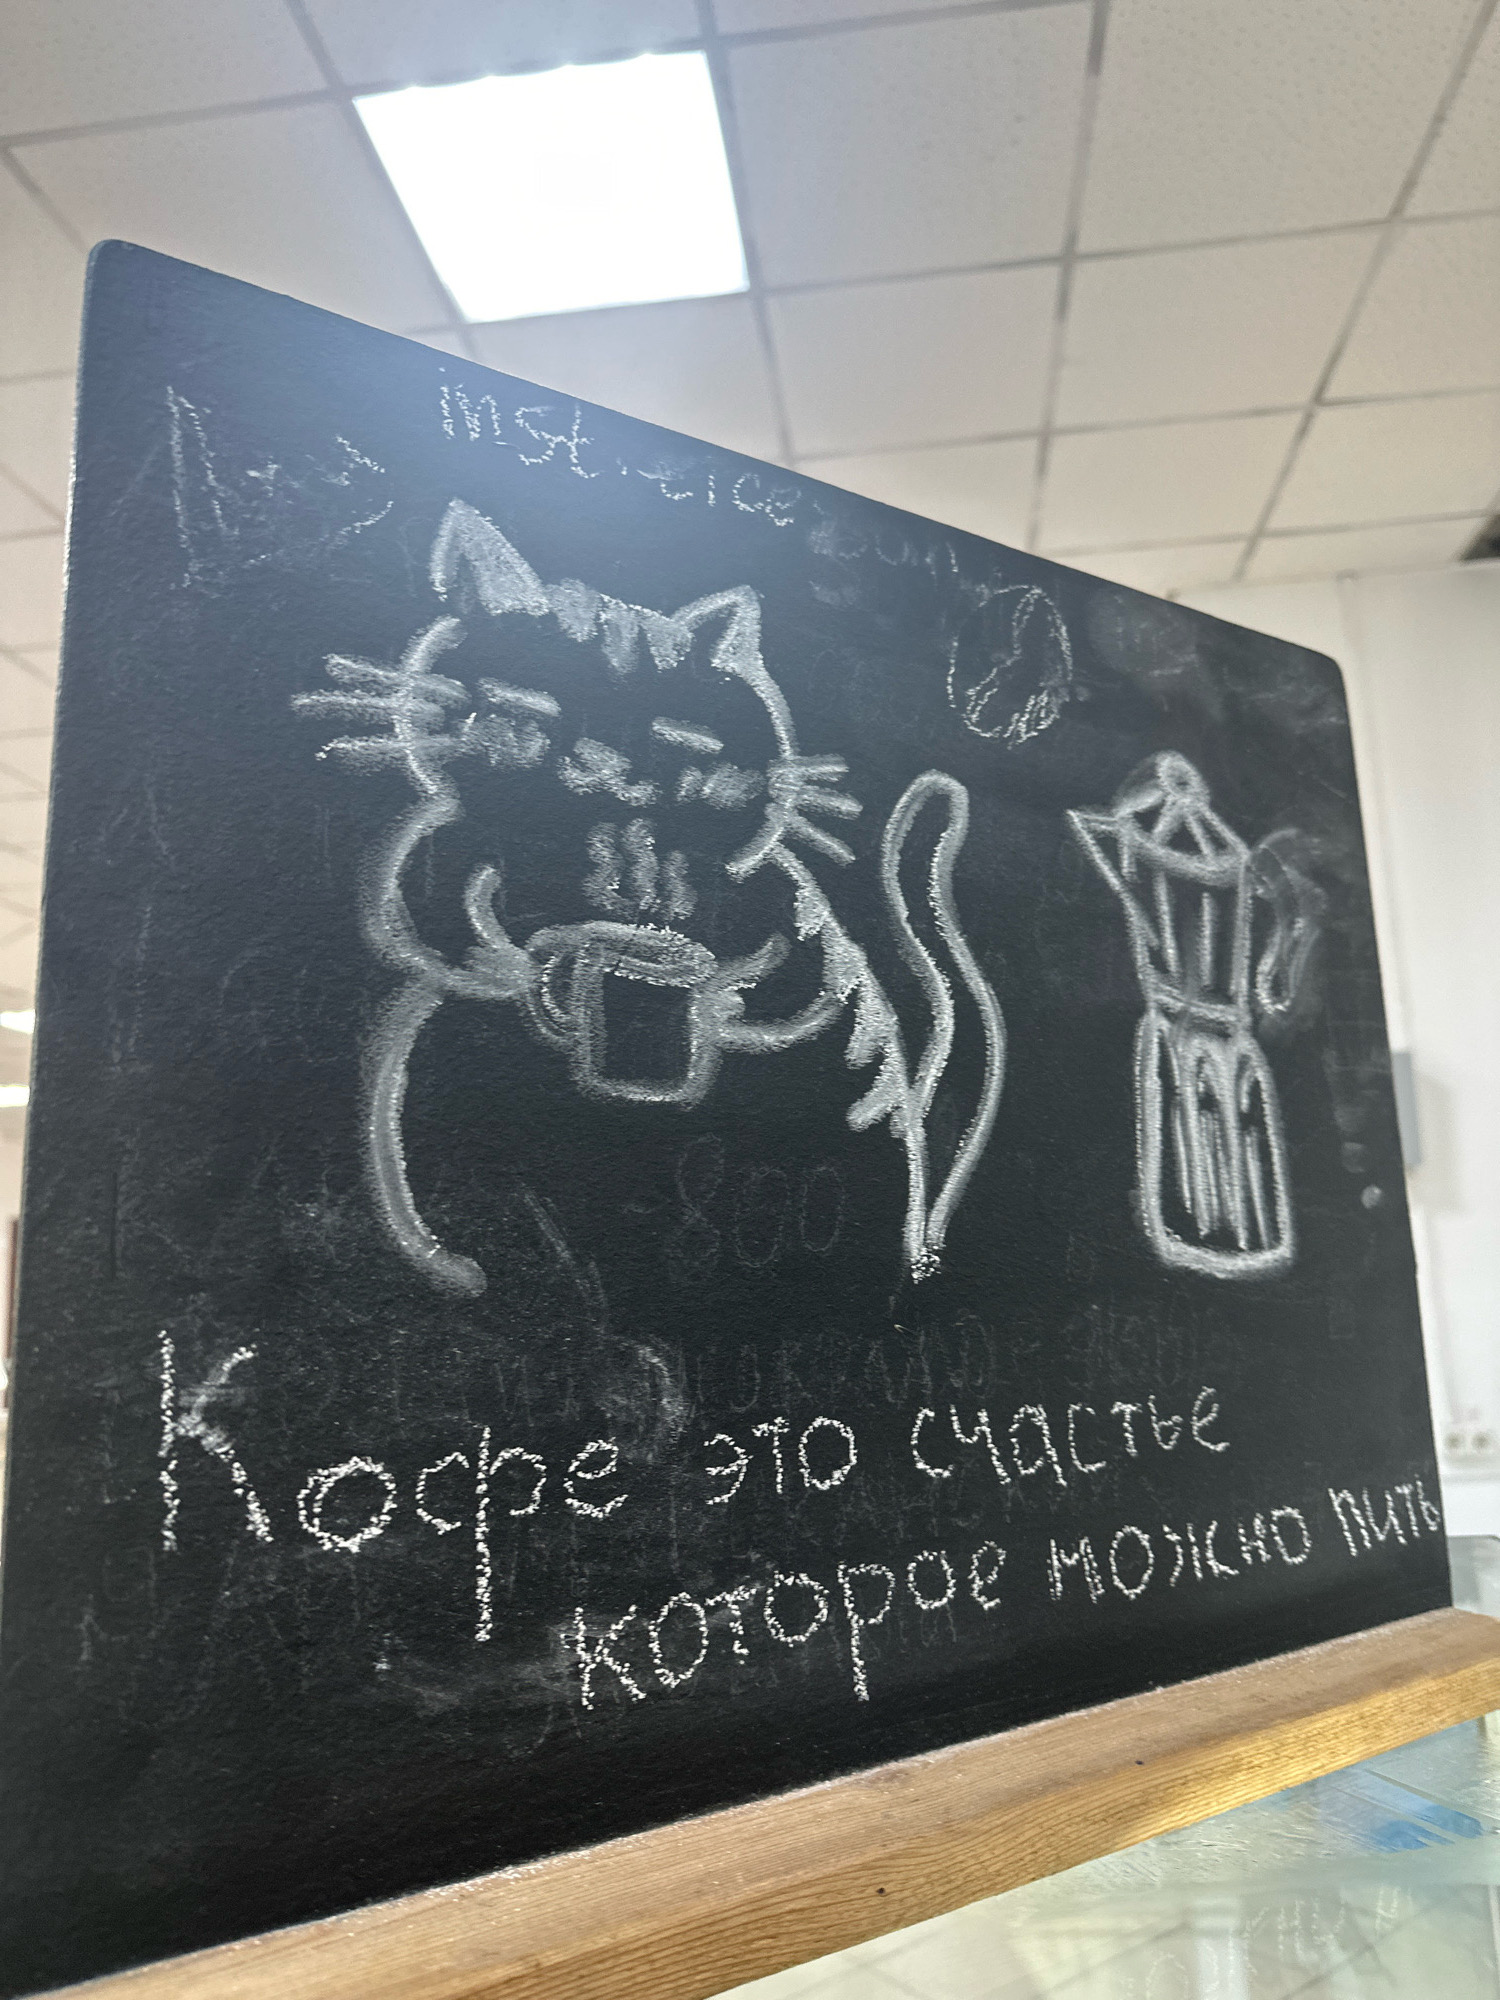 inst.
800
Кофе это счастье
которое можно пить